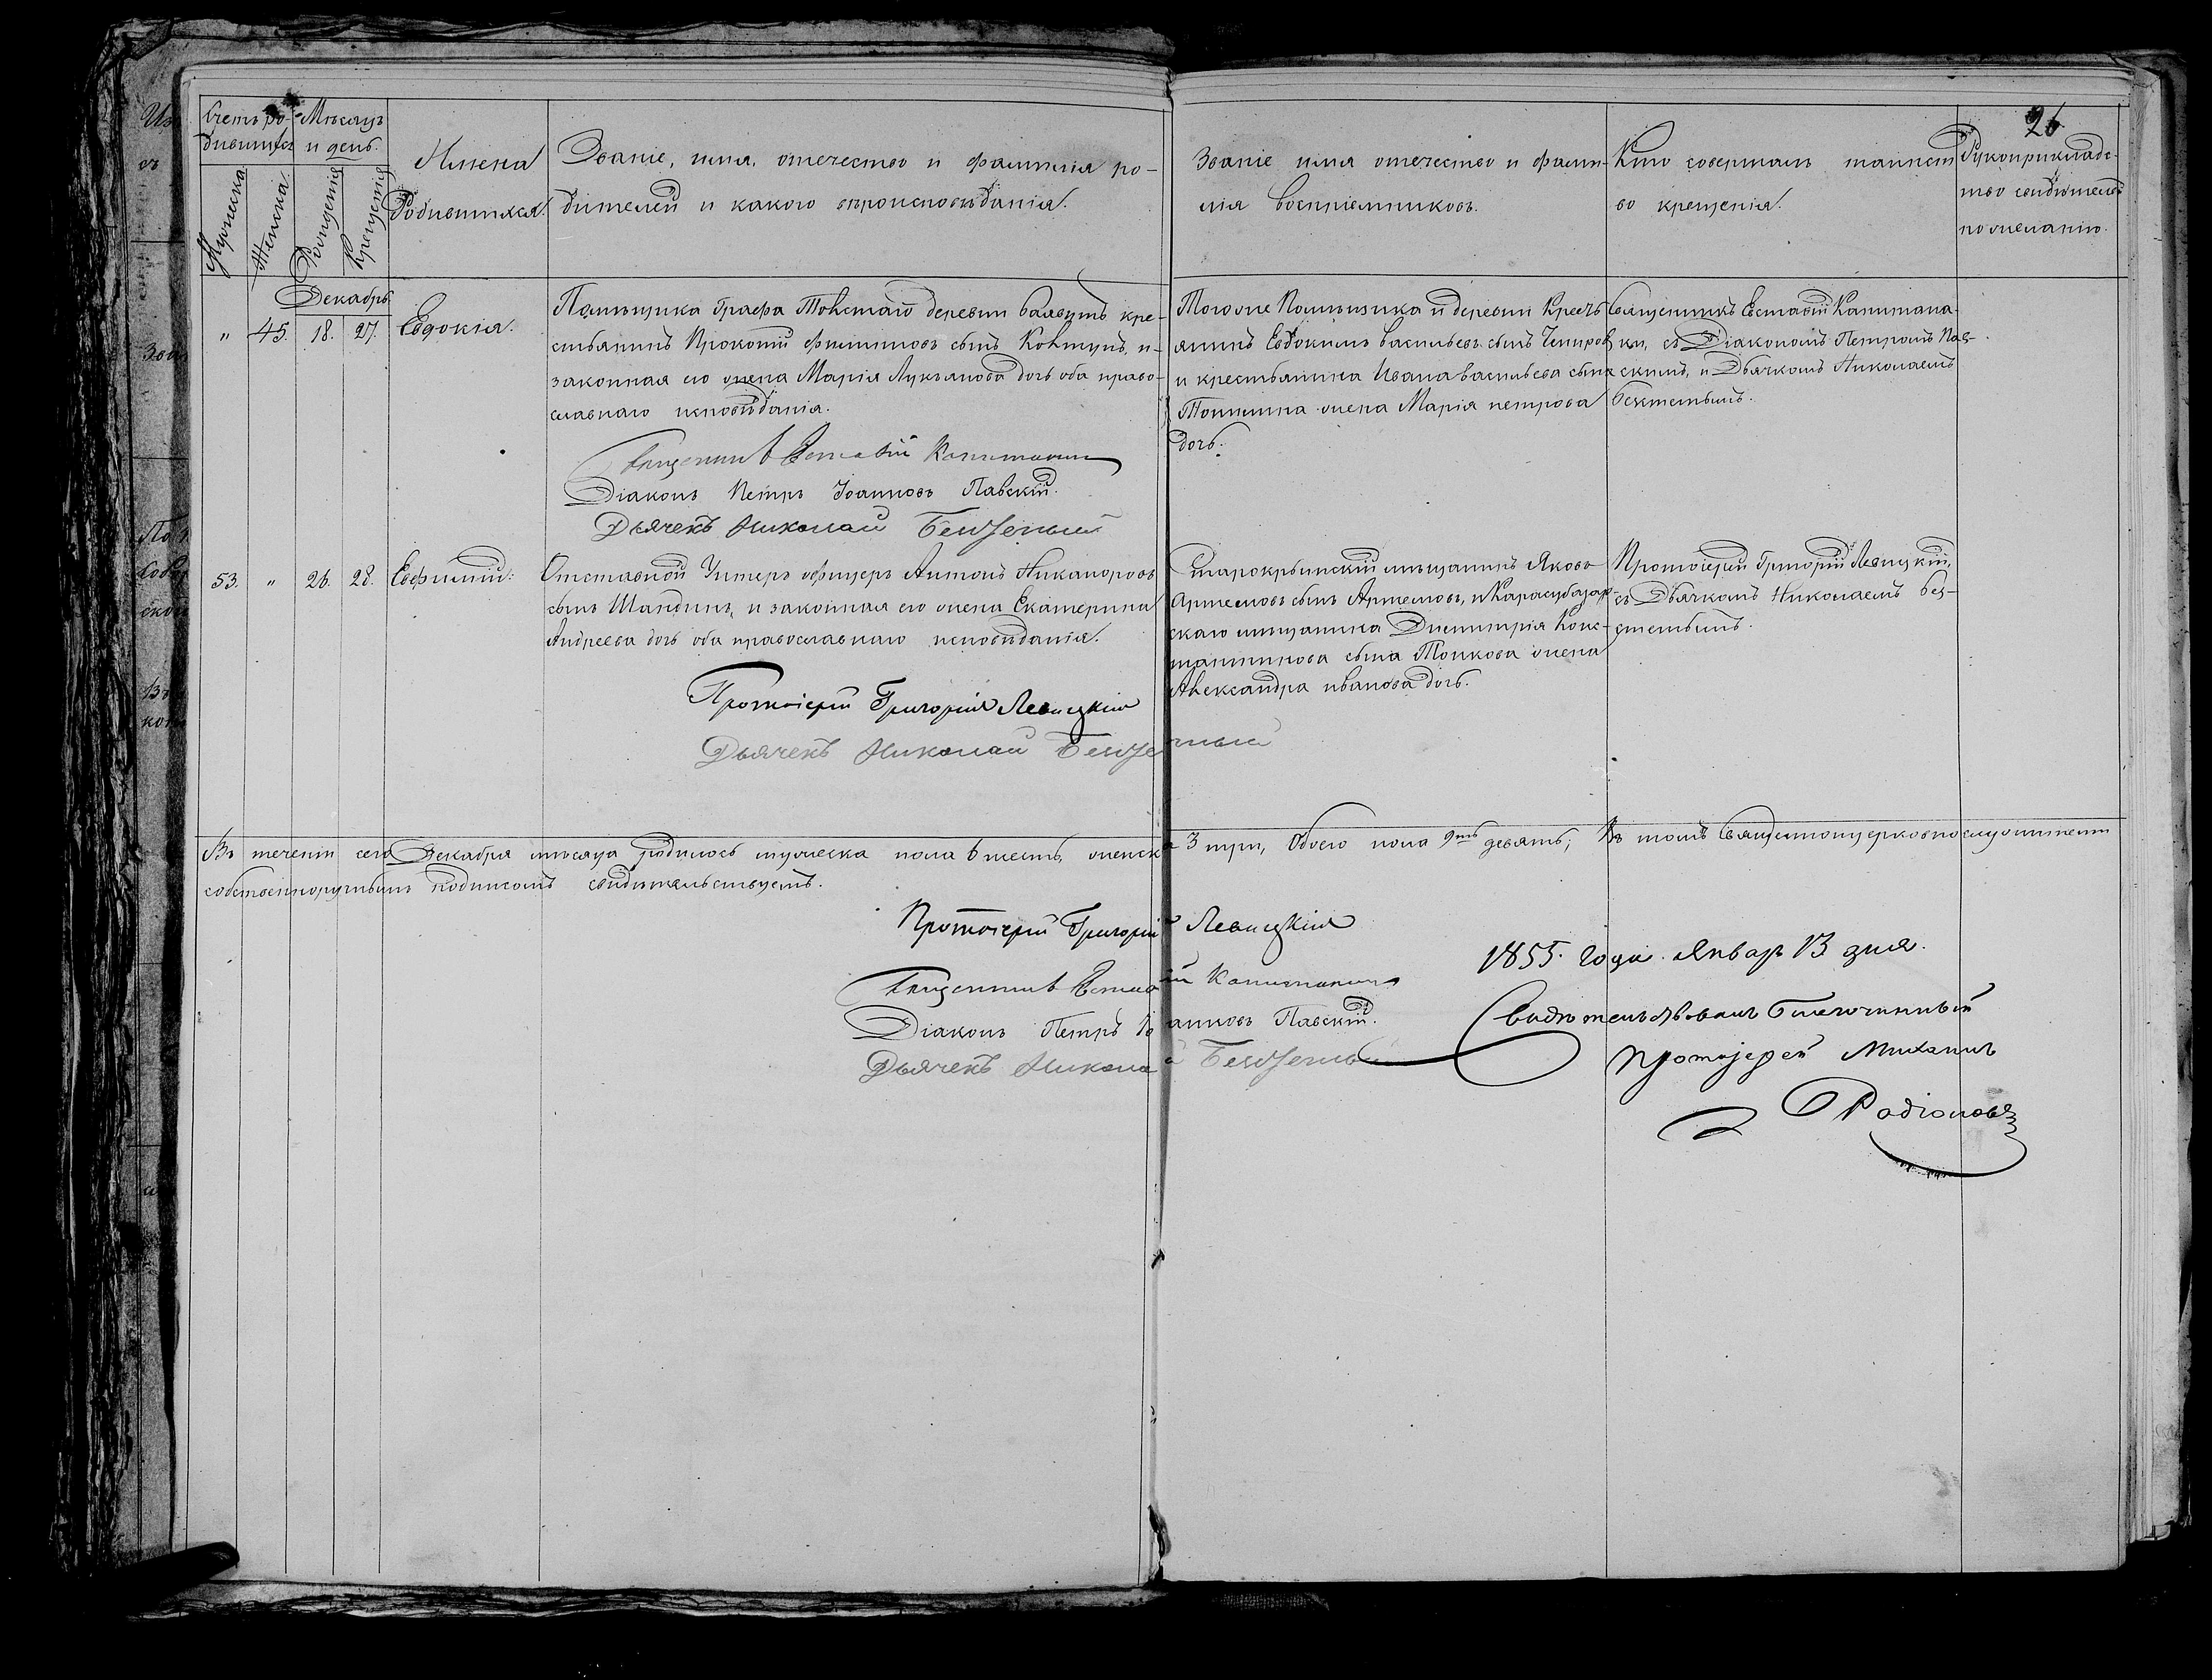 26
Счетъ ро-
дившихся
Мѣсяцъ
и день.
Мужеска
Женска.
Рожденія
Крещенія
Имена
Родившихся.
Званіе, имя, отечество и фамилія ро-
дителей и какого вѣроисповѣданія.
Званіе имя отечество и фами-
лія воспріемниковъ.
Кто совершалъ таинст
во крещенія.
Рукоприкладс-
тво свидѣтелей
по желанію.
Декабрь
" 45. 18. 27. Евдокія.
Помѣщика Графа Толстаго деревни кре-
стьянинъ Прокопій Филиповъ сынъ Ковтунъ, и
законная его жена Марія Лукъянова дочь оба право-
славнаго исповѣданія.
Священникъ Евставій
Діаконъ Петръ Іоанновъ Павскій.
Дьячекъ Николай
Тогоже Помѣщика и деревни Кресть
янинъ Евдокимъ Васильевъ сынъ
и крестьянина Ивана Васильева сына
жена Марія петрова
дочь.
Священникъ Евставій Капитана-
ки, съ Діакономъ Петромъ Пав-
скимъ, и Дьячкомъ Николаемъ
53. " 26. 28. Евфимій.
Отставной Унтеръ офицеръ Антонъ Никаноровъ
сынъ Шандинъ, и законная его жена Екатерина
Андреева дочь оба православнаго исповѣданія.
Протоіерей Григорій Левицкій
Дьячекъ Николай
Старокрымскій мѣщанинъ Яковъ
Артемовъ сынъ Артемовъ, и Карасубазар-
скаго мѣщанина Димитрія Конс-
тантинова сына Попкова жена
Александра иванова дочь.
Протоіерей Григорій Левицкій,
съ Дьячкомъ Николаемъ
Въ теченіи сего Декабря мѣсяца родилось мужеска пола 6 шесть, женска 3 три, Обоего пола 9ть девять; Въ томъ Священноцерковнослужители
собственноручнымъ подписомъ свидѣтельствуемъ.
Протоіерей Григорій Левицкій
Священникъ Евставій
Діаконъ Петръ Іоанновъ Павскій.
Дьячекъ Николай
1855. года. Январь 13 дня.
Свидѣтельствовалъ Благочинный
протоіерей Михаилъ
Родіоновъ